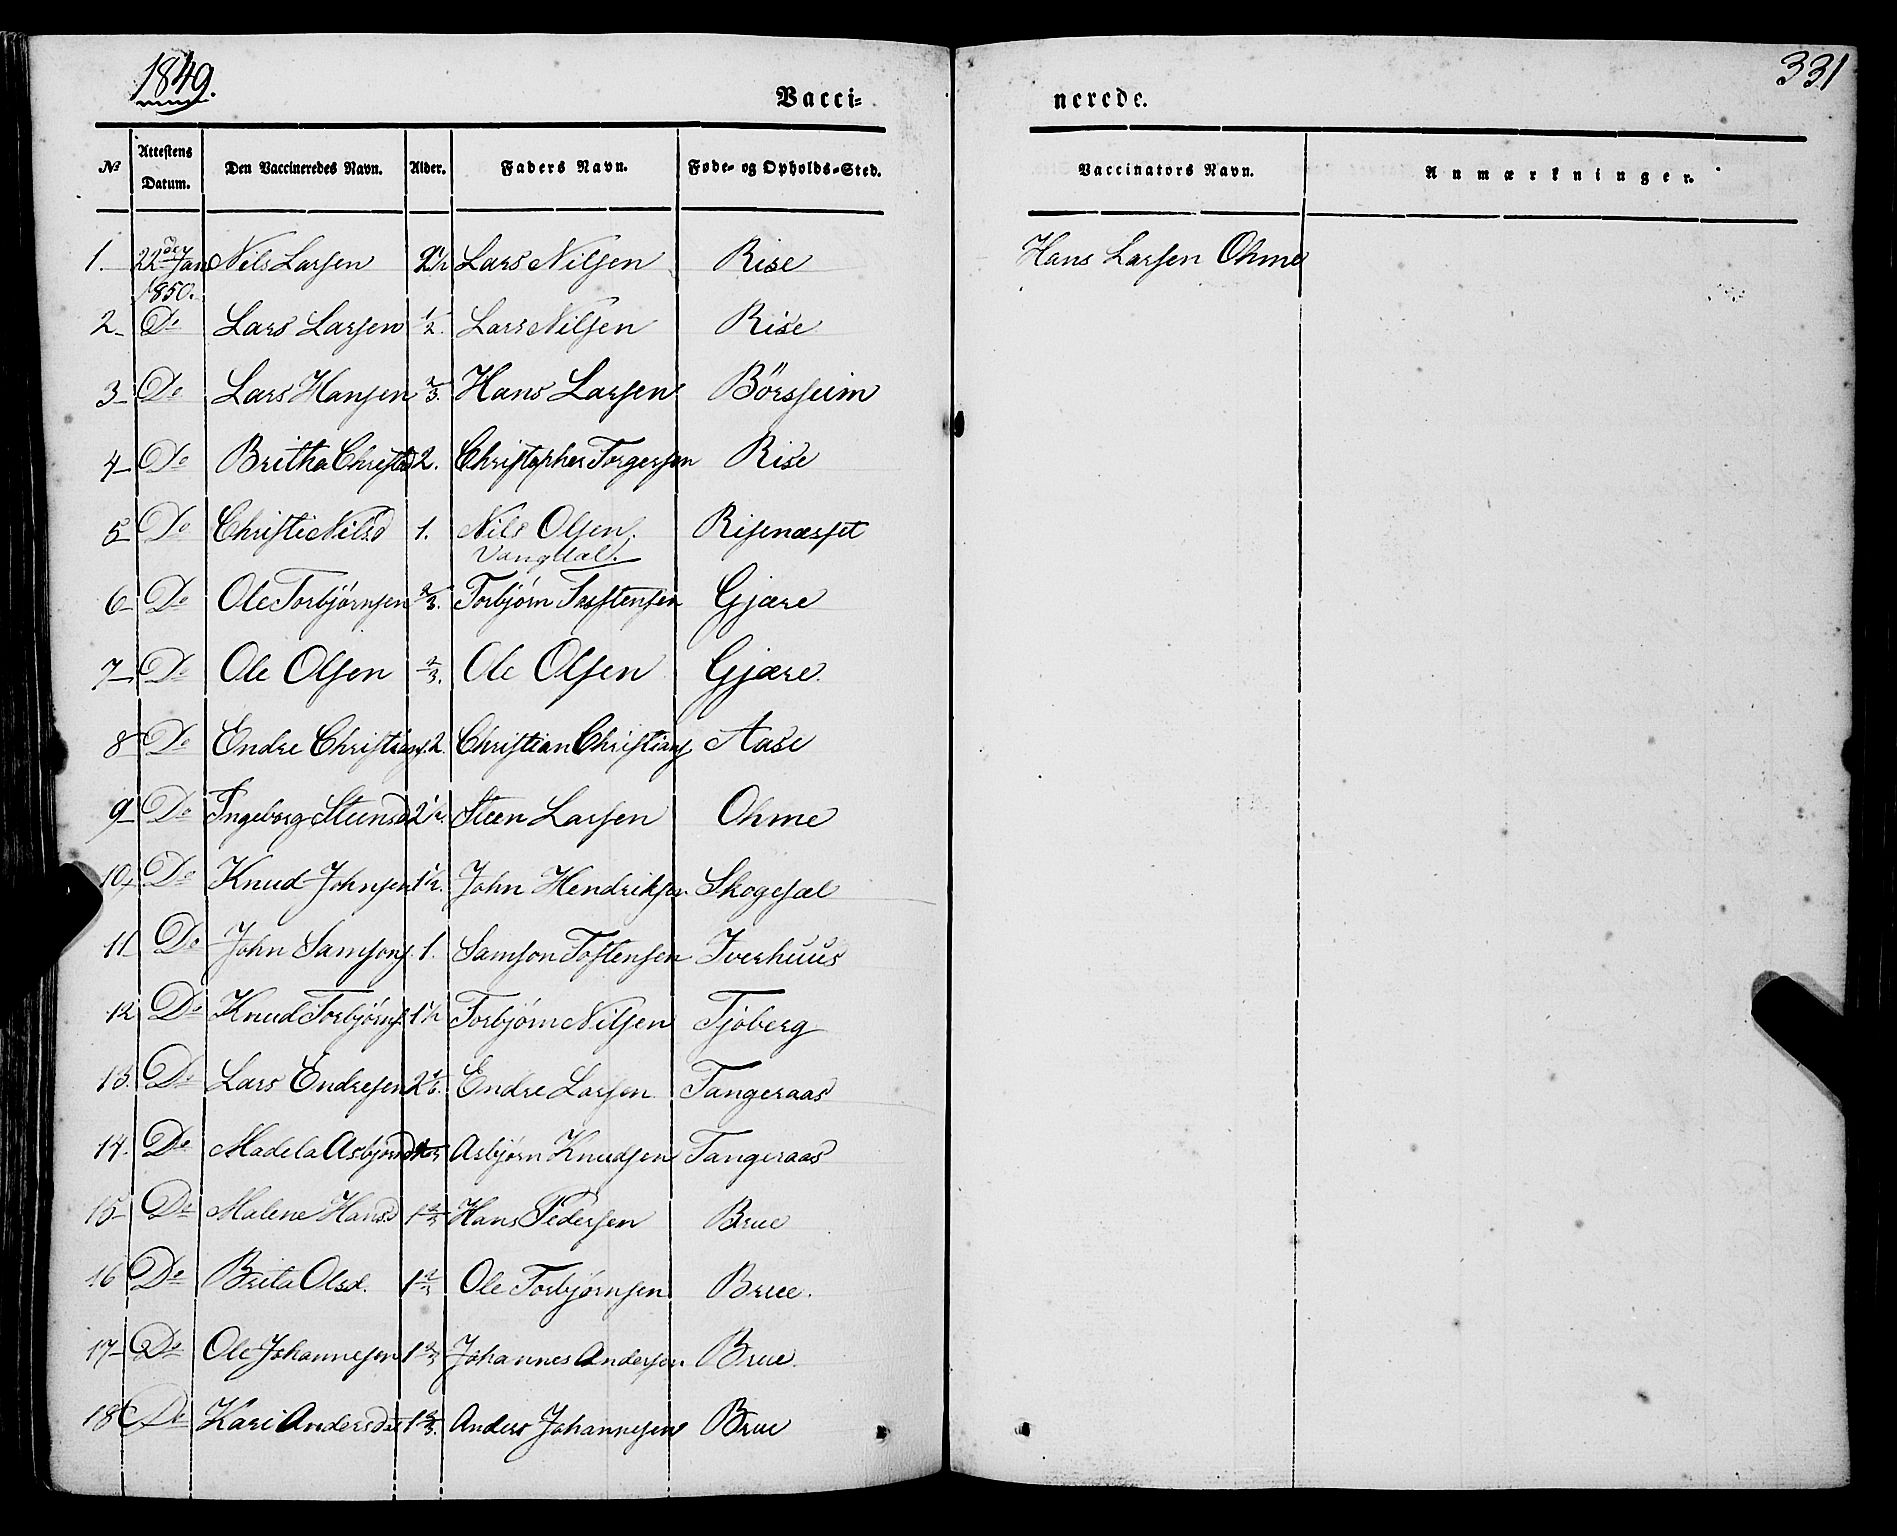 1849.
331
Vacci= nerede.
No | Attestens Datum. | Den Vaccineredes Navn. | Alder. | Faders Navn. | Føde- og Opholds-Sted. | Vaccinators Navn. | Anmærkninger.
1. | 22de Jan 1850. | Nils Larsen | 2 1/2 | Lars Nilsen | Rise | Hans Larsen Ohme
2 | Do | Lars Larsen | 1/2. | Lars Nilsen | Rise
3 | Do | Lars Hansen | 2/3. | Hans Larsen | Börsheim
4 | Do | Britha Christd | 2. | Christopher Torgersen | Rise
5 | Do | Christi Nilsd | 1. | Nils Olsen. Vangdal. | Risenæsset
6 | Do | Ole Torbjørnsen | 2/3. | Torbjørn Tostensen | Gjære
7 | Do | Ole Olsen | 2/3. | Ole Olsen | Gjære.
8 | Do | Endre Christians | 2. | Christian Christians | Aase
9 | Do | Ingeborg Steensd | 2 1/2. | Steen Larsen | Ohme
10, | Do | Knud Johnsen | 1 1/2. | John Hendriksen | Skogesæl
11 | Do | John Samsons. | 1. | Samson Tostensen | Iverhuus
12 | Do | Knud Torbjørns. | 1 1/2 | Torbjørn Nilsen | Tjoberg
13. | Do | Lars Endresen | 2 1/6. | Endre Larsen | Tangeraas
14. | Do | Madela Asbjørnsd | Asbjørn Knudsen | Tangeraas
15 | Do | Malene Hansd | 1 2/3 | Hans Pedersen | Brue
16 | Do | Brita Olsd. | 1 2/3 | Ole Torbjørnsen | Brue.
17 | Do | Ole Johannesen | 1 2/3 | Johannes Andersen | Brue.
18 | Do | Kari Andersdat | 1 2/3. | Anders Johannesen | Brue